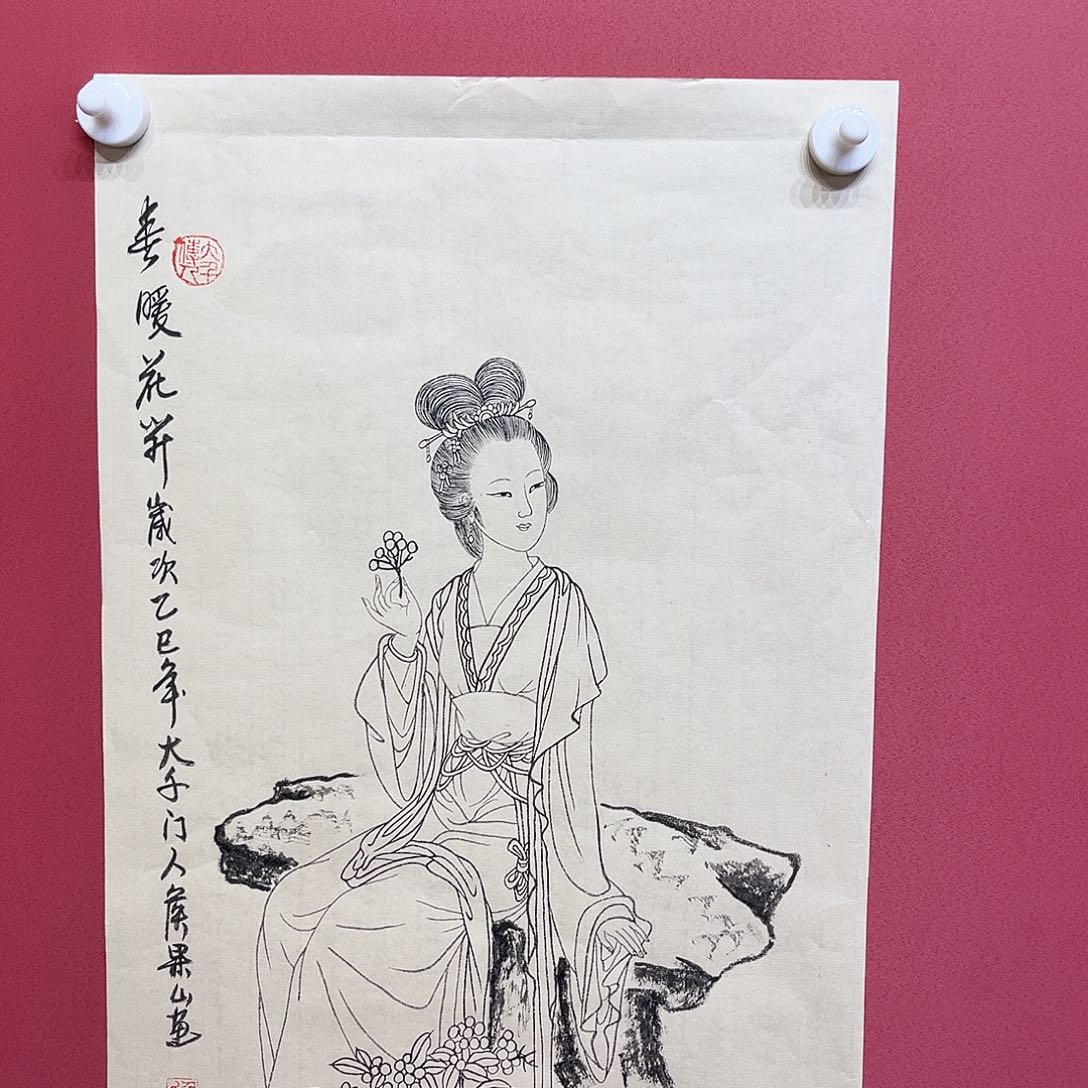 春暖花开岁次乙巳年大千门人侯果山画
大千传人